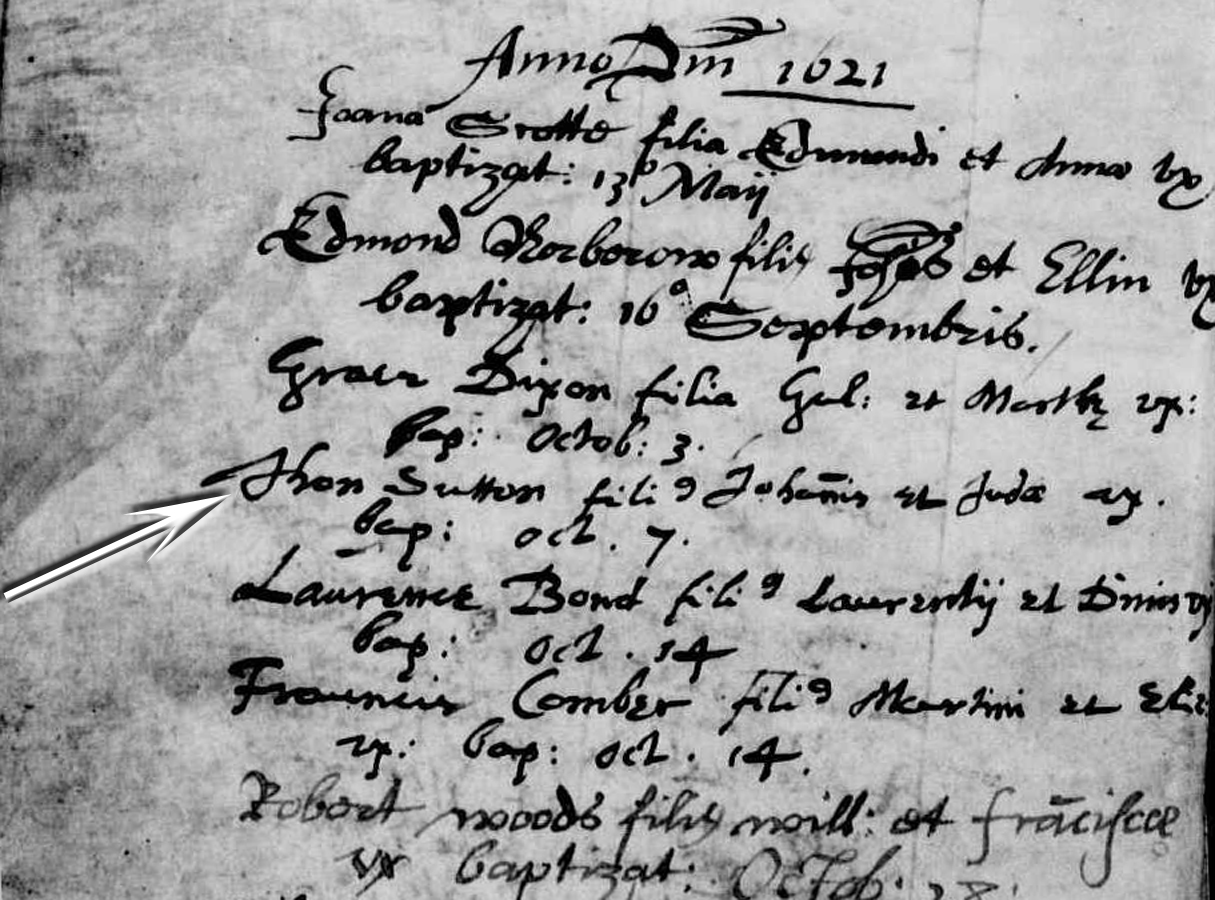 Anno Dm̄ 1621
Joana Grotte filia Edmundi et Annæ vx
baptizat: 13º Maij
Edmond filiꝰ Johēs et Ellin vx
baptizat: 16º Septembris.
Grace Dixon filia Gul: et Marthę vx:
bap: Octob: 3.
Jhon Sutton filiꝰ Johan̄is et Judæ ux.
bap: oct. 7.
Laurence Bond filiꝰ Laurentij et
bap: Oct. 14
Frauncis Comber filiꝰ Martini et Eliz:
vx: bap: oct. 14.
Robert woods filiꝰ will: et frāciscæ
vx baptizat: Octob: 28.